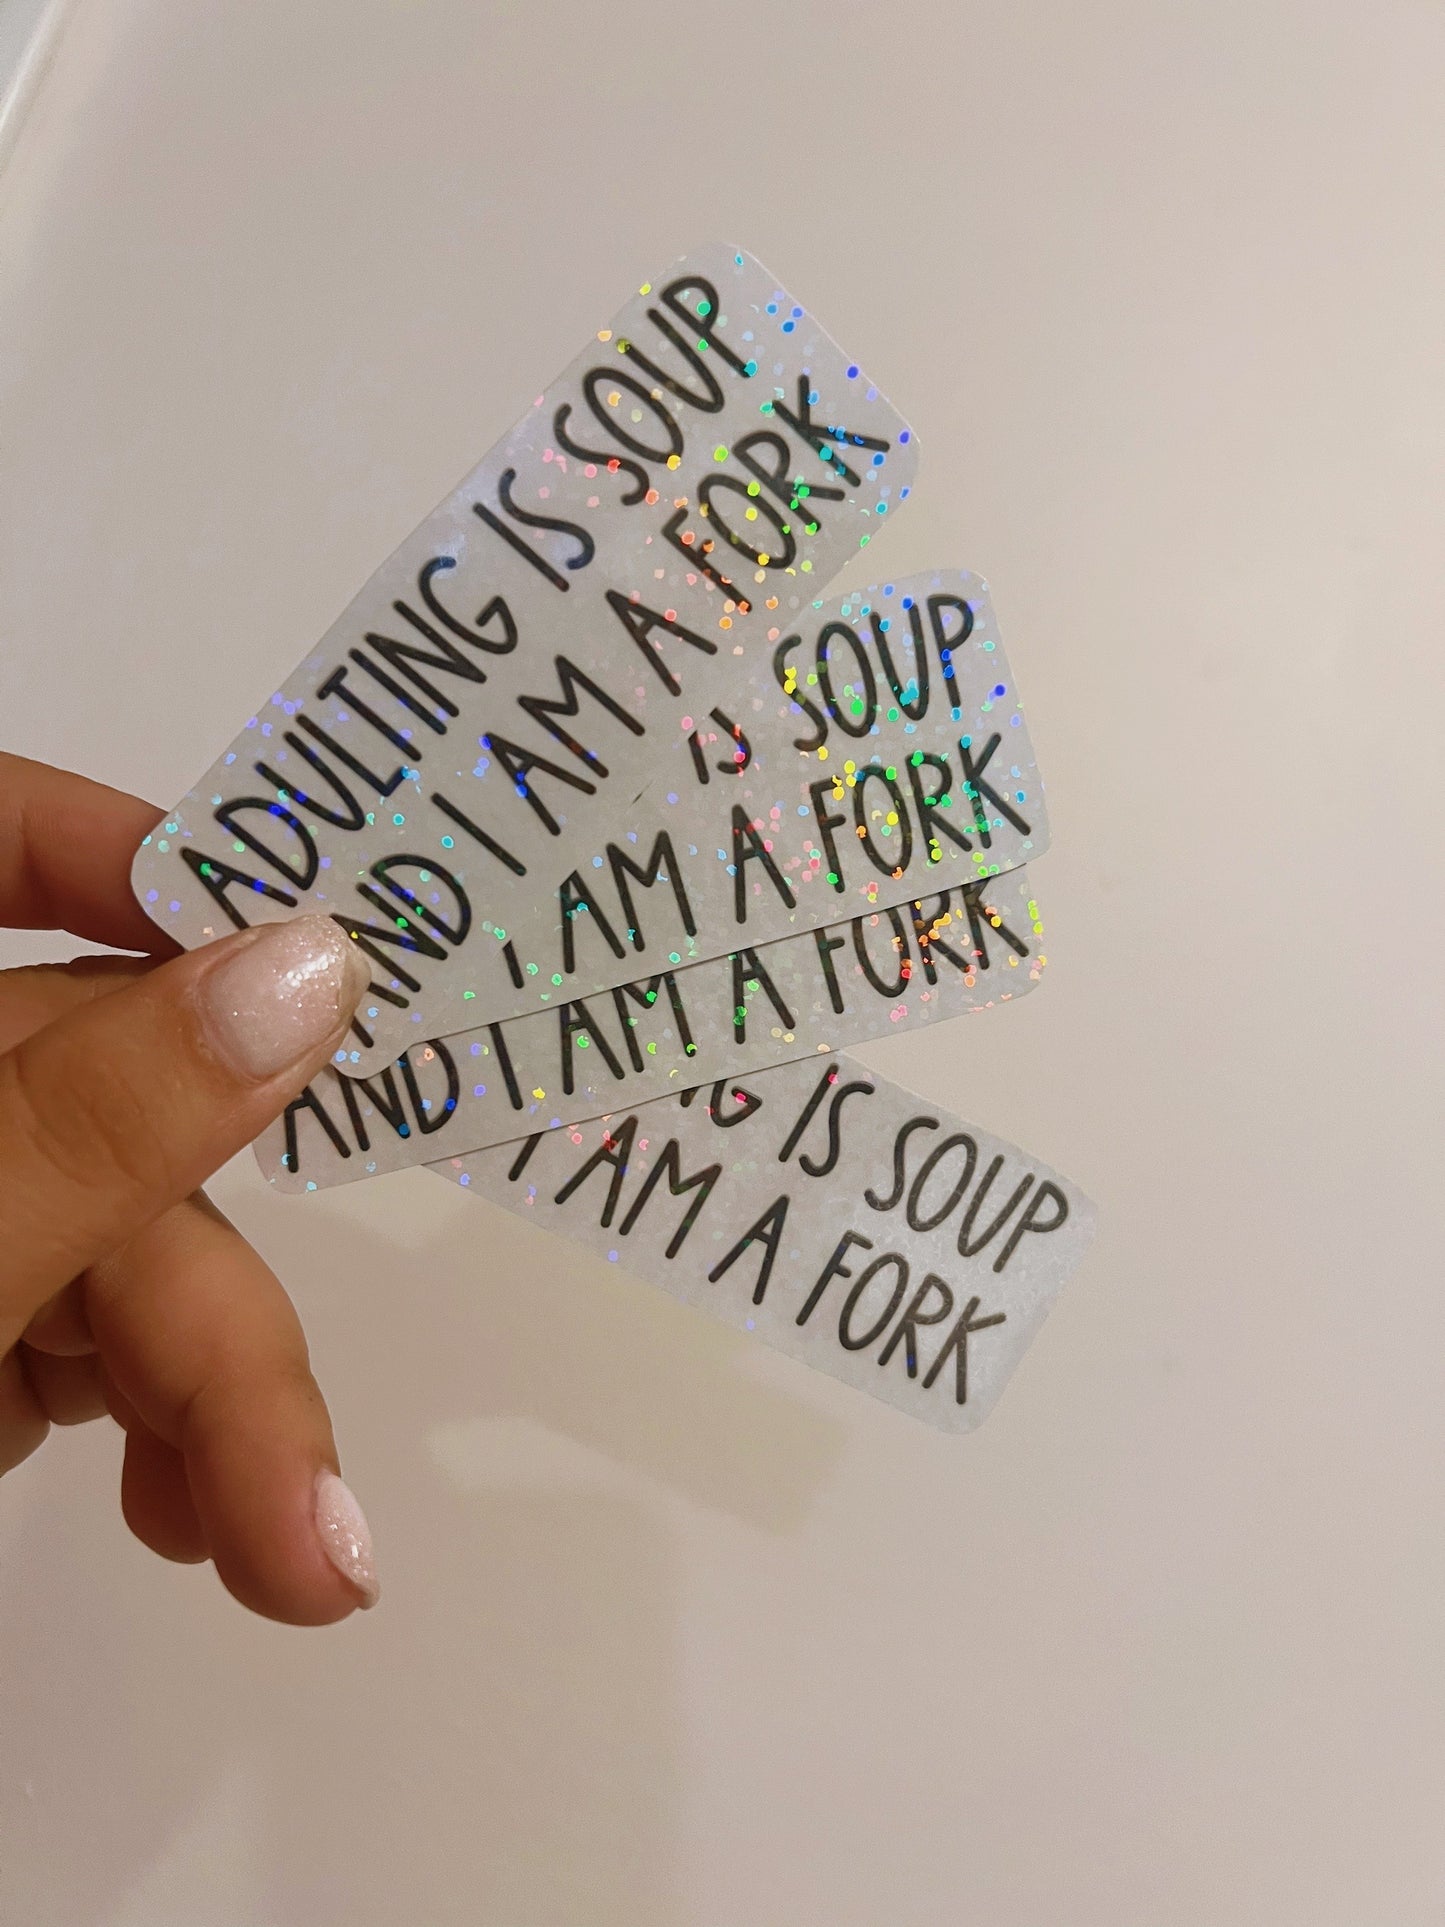 ADULTING IS SOUP
AND I AM A FORK
IS SOUP
I AM A FORK
AND I AM A FORK
IS SOUP
I AM A FORK